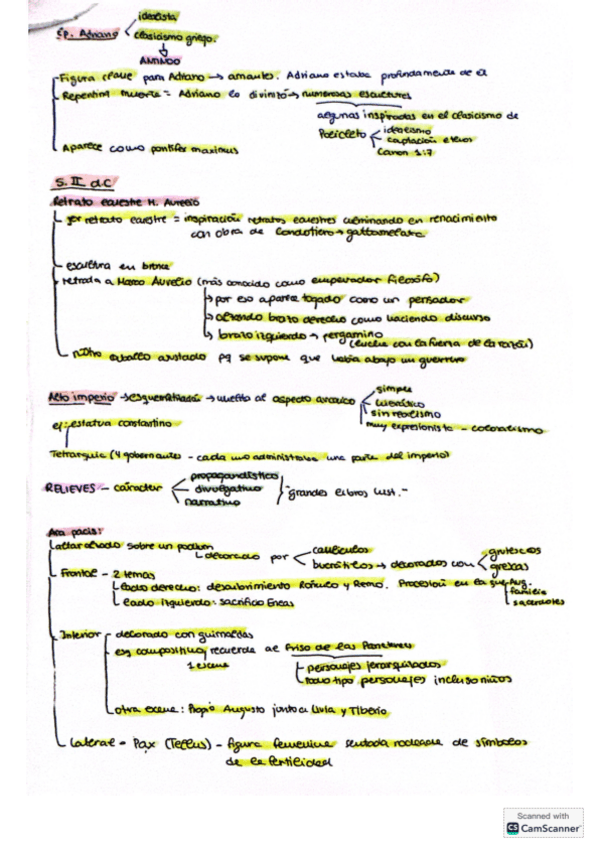 Ep. Adriano
idealista
clasicismo griego.
ANTINOO
Figura clave para Adriano → amantes. Adriano estaba profundamente de él
Repentina muerte = Adriano lo divinizó → numerosas esculturas
algunas inspiradas en el clasicismo de
Policleto
idealismo
captación ethos
Canon 1:7
Aparece como pontifex maximus
S. II d.C
Retrato ecuestre M. Aurelio
1er retrato ecuestre = inspiración retratos ecuestres culminando en renacimiento
con obra de Condotiero → gattamelata
escultura en bronce
retrata a Marco Aurelio (más conocido como emperador filósofo)
por eso aparece togado como un pensador
alzando brazo derecho como haciendo discurso
brazo izquierdo → pergamino
(lucha con la fuerza de la razón)
caballo asustado pq se supone que había abajo un guerrero
Alto imperio → esquematización → vuelta al aspecto arcaico
simple
hierático
sin realismo
muy expresionista - colosalismo
ej: estatua constantino
Tetrarquía (4 gobernantes - cada uno administraba una parte del imperio)
RELIEVES - carácter
propagandístico
divulgativo
narrativo
"grandes libros ilust."
Ara pacis:
altar alzado sobre un podium
decorado por
caulículos
bucráneos → decorados con
grutescos
grecas
Frontal - 2 temas
Lado derecho: descubrimiento Rómulo y Remo. Procesión en la que Aug.
familia
sacerdotes
Lado izquierdo: sacrificio Eneas
Interior
decorado con guirnaldas
esq compositivo recuerda al Friso de las Panateneas
1 escena
personajes jerarquizados
todo tipo personajes incluso niños
otra escena: Propio Augusto junto a Livia y Tiberio
Lateral = Pax (Tellus) - figura femenina sentada rodeada de símbolos
de la fertilidad
Scanned with
CS CamScanner